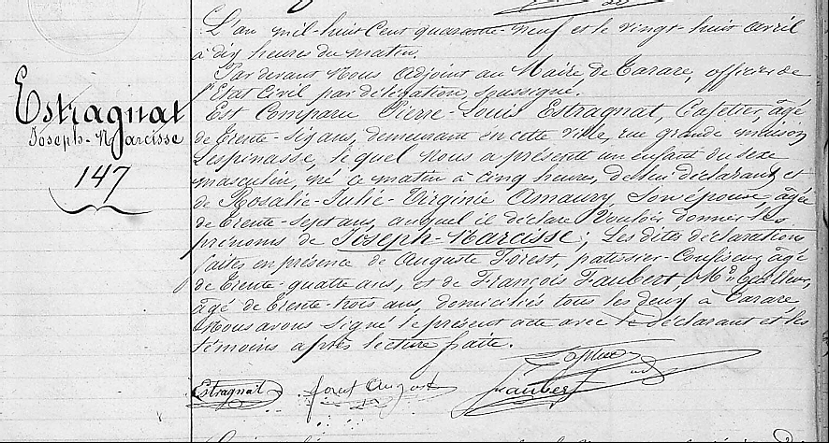 Estragnat
Joseph-Narcisse
147
L'an mil-huit Cent quarante-neuf et le vingt-huit avril
à dix heures du matin.
Par devant Nous adjoint au Maire de Tarare, officier de
l'Etat Civil par délégation, soussigné.
Est Comparu Pierre-Louis Estragnat, Cafetier, âgé
de trente-six ans, demeurant en cette ville, rue grande maison
Lespinasse, lequel Nous a présenté un enfant du sexe
masculin, né ce matin à cinq heures, de lui déclarant et
de Rosalie-Julie-Virginie Amaury Son épouse âgée
de trente-sept ans, auquel il déclare Vouloir donner les
prénoms de Joseph-Narcisse; Les dites déclarations
faites en présence de Auguste Forest, patissier-Confiseur, âgé
de trente-quatre ans, et de François Faubert Md.
âgé de trente-trois ans, domiciliés tous les deux à Tarare
Nous avons signé le présent acte avec le déclarant et les
témoins après lecture faite.
Estragnat forest August faubert